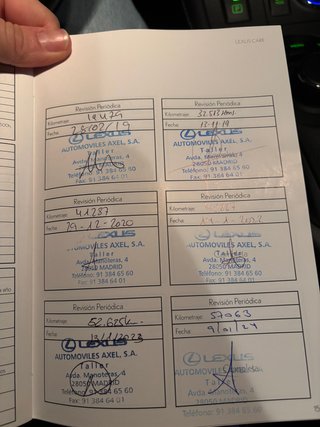 LEXUS CARE
Revisión Periódica
Kilometraje:
Fecha: 28/02/19
LEXUS
AUTOMOVILES AXEL, S.A.
Taller
Avda. Manoteras, 4
28050 MADRID
Teléfono: 91 384 65 60
Fax: 91 384 64 01
Revisión Periódica
Kilometraje: 32.513 kms
Fecha: 13-11-19
LEXUS
AUTOMOVILES AXEL, S.A.
Taller
Avda. Manoteras, 4
28050 MADRID
Teléfono: 91 384 65 60
Fax: 91 384 64 01
Revisión Periódica
Kilometraje: 41287
Fecha: 29-12-2020
LEXUS
AUTOMOVILES AXEL, S.A.
Taller
Avda. Manoteras, 4
28050 MADRID
Teléfono: 91 384 65 60
Fax: 91 384 64 01
Revisión Periódica
Kilometraje:
Fecha:
LEXUS
AUTOMOVILES AXEL, S.A.
Taller
Avda. Manoteras, 4
28050 MADRID
Teléfono: 91 384 65 60
Fax: 91 384 64 01
Revisión Periódica
Kilometraje:
Fecha: 13/1/2023
LEXUS
AUTOMOVILES AXEL, S.A.
Taller
Avda. Manoteras, 4
28050 MADRID
Teléfono: 91 384 65 60
Fax: 91 384 64 01
Revisión Periódica
Kilometraje: 57063
Fecha: 9/01/24
LEXUS
AUTOMOVILES AXEL, S.A.
Taller
Avda. Manoteras, 4
28050 MADRID
Teléfono: 91 384 65 60
15